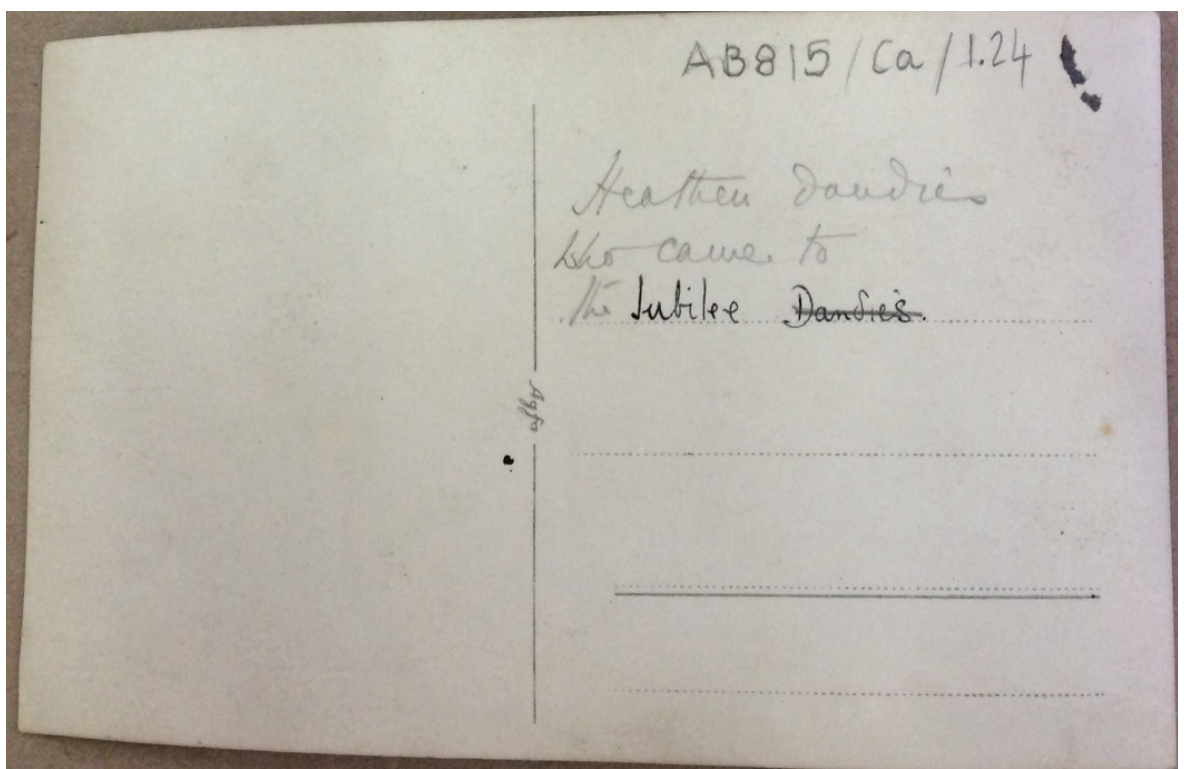 AB815/Ca/1.24
Heathen Dandies
who came to
the Jubilee ~~Dandies.~~
Agfa